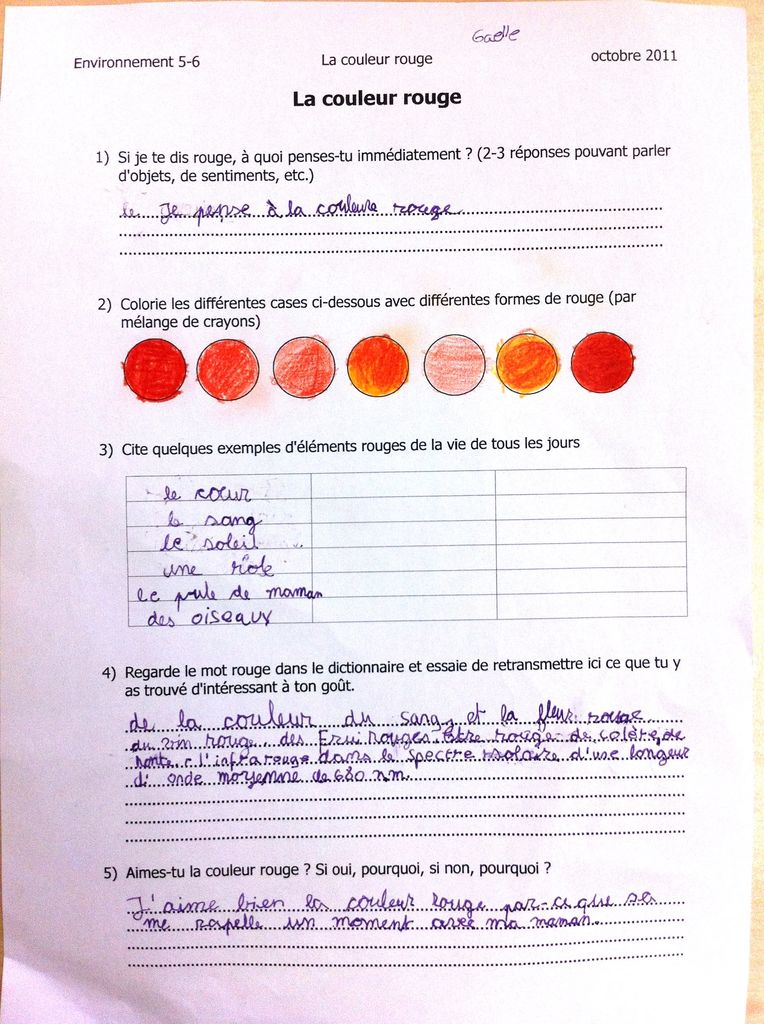 Gaelle
Environnement 5-6 La couleur rouge octobre 2011
La couleur rouge
1) Si je te dis rouge, à quoi penses-tu immédiatement ? (2-3 réponses pouvant parler
d'objets, de sentiments, etc.)
le Je pense à la couleure rouge.
2) Colorie les différentes cases ci-dessous avec différentes formes de rouge (par
mélange de crayons)
3) Cite quelques exemples d'éléments rouges de la vie de tous les jours
le cœur
le sang
le soleil
une
le pule de maman
des oiseaux
4) Regarde le mot rouge dans le dictionnaire et essaie de retransmettre ici ce que tu y
as trouvé d'intéressant à ton goût.
de la couleur du sang, et la fleur rouge
du vin rouge des Frui rouges. Etre rouge de colère, de
honte l'infrarouge dans le spectre solaire d'use longeur
d'onde moyenne de 680 nm.
5) Aimes-tu la couleur rouge ? Si oui, pourquoi, si non, pourquoi ?
J'aime bien la couleur rouge par-ce que sa
me rapelle un moment avec ma maman.